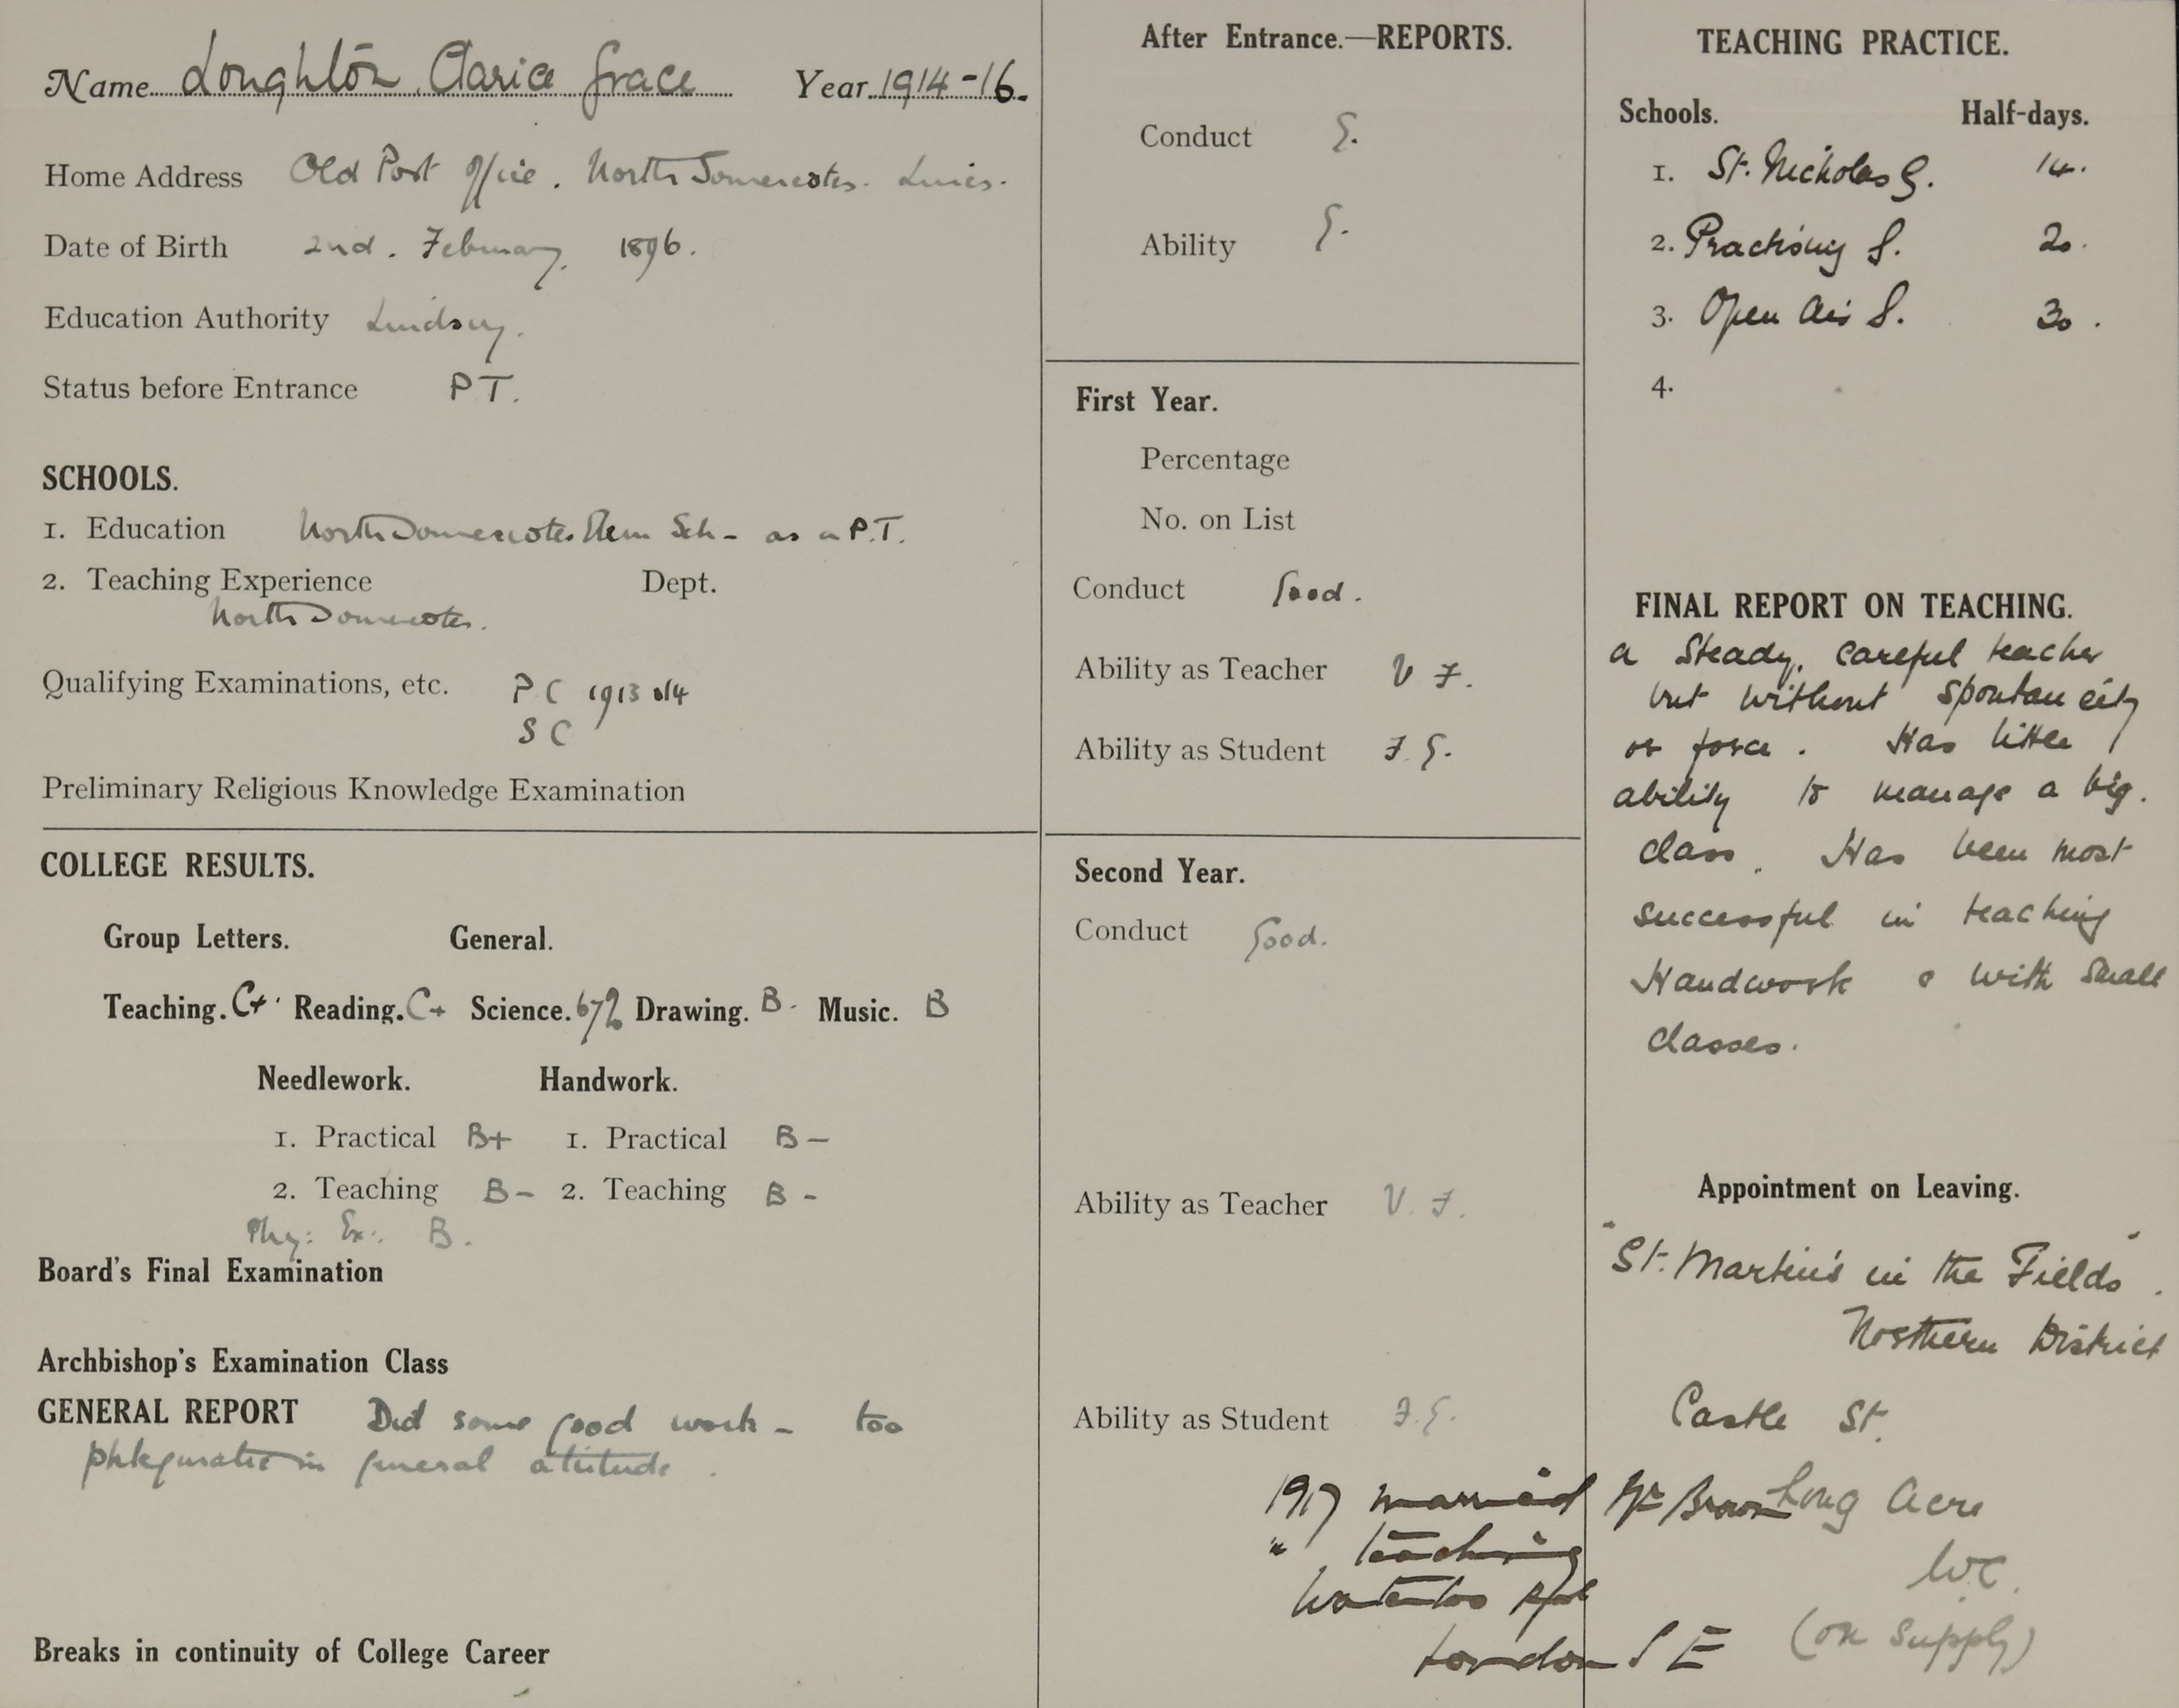 Name Loughton Clarice Grace Year 1914-16.
Home Address Old Post Office. North Somercotes. Lincs.
Date of Birth 2nd. February. 1896.
Education Authority Lindsey.
Status before Entrance PT.
SCHOOLS.
1. Education North Somercotes Elem Sch - as a P.T.
2. Teaching Experience Dept.
North Somercotes.
Qualifying Examinations, etc. P C 1913 &14
S C
Preliminary Religious Knowledge Examination
COLLEGE RESULTS.
Group Letters. General.
Teaching. C+ Reading. C+ Science. 67% Drawing. B- Music. B
Needlework. Handwork.
1. Practical B+ 1. Practical B-
2. Teaching B- 2. Teaching B-
Phy: Ex: B.
Board's Final Examination
Archbishop's Examination Class
GENERAL REPORT Did some good work - too
phlegmatic in general attitude.
Breaks in continuity of College Career
After Entrance.—REPORTS.
Conduct G.
Ability G.
First Year.
Percentage
No. on List
Conduct Good.
Ability as Teacher V F.
Ability as Student F.G.
Second Year.
Conduct Good.
Ability as Teacher V. F.
Ability as Student F.G.
1917 married Mr Brown
" teaching
Waterloo
London S E
TEACHING PRACTICE.
Schools. Half-days.
1. St. Nicholas G. 14.
2. Practising S. 20.
3. Open Air S. 30.
4.
FINAL REPORT ON TEACHING.
a Steady, careful teacher
but without spontaneity
or force. Has little
ability to manage a big.
class. Has been most
successful in teaching
Handwork & with small
classes.
Appointment on Leaving.
"St. Martin's in the Fields".
Northern District
Castle St.
Long Acre
W.C.
(on supply)